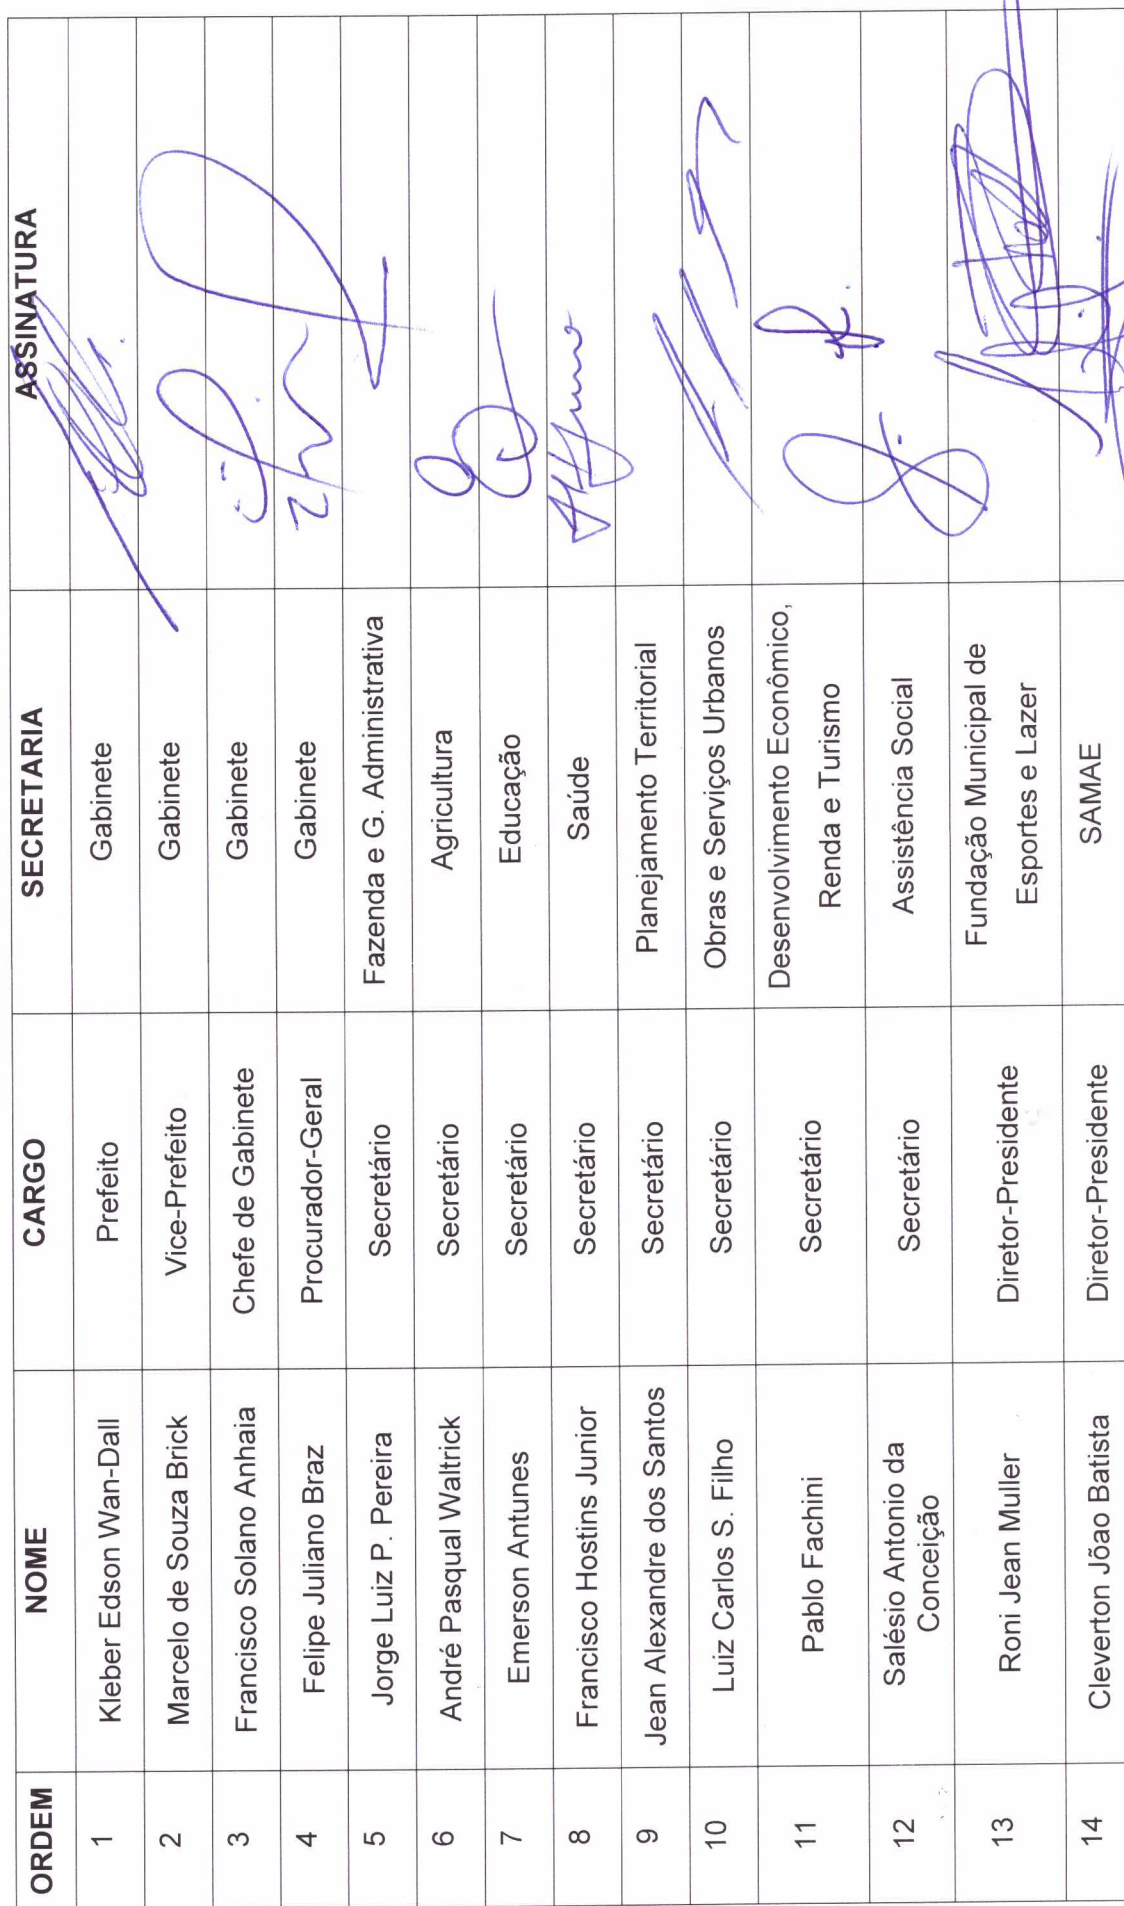 ORDEM NOME CARGO SECRETARIA ASSINATURA
1 Kleber Edson Wan-Dall Prefeito Gabinete
2 Marcelo de Souza Brick Vice-Prefeito Gabinete
3 Francisco Solano Anhaia Chefe de Gabinete Gabinete
4 Felipe Juliano Braz Procurador-Geral Gabinete
5 Jorge Luiz P. Pereira Secretário Fazenda e G. Administrativa
6 André Pasqual Waltrick Secretário Agricultura
7 Emerson Antunes Secretário Educação
8 Francisco Hostins Junior Secretário Saúde
9 Jean Alexandre dos Santos Secretário Planejamento Territorial
10 Luiz Carlos S. Filho Secretário Obras e Serviços Urbanos
11 Pablo Fachini Secretário Desenvolvimento Econômico,
Renda e Turismo
12 Salésio Antonio da
Conceição Secretário Assistência Social
13 Roni Jean Muller Diretor-Presidente Fundação Municipal de
Esportes e Lazer
14 Cleverton Jõao Batista Diretor-Presidente SAMAE